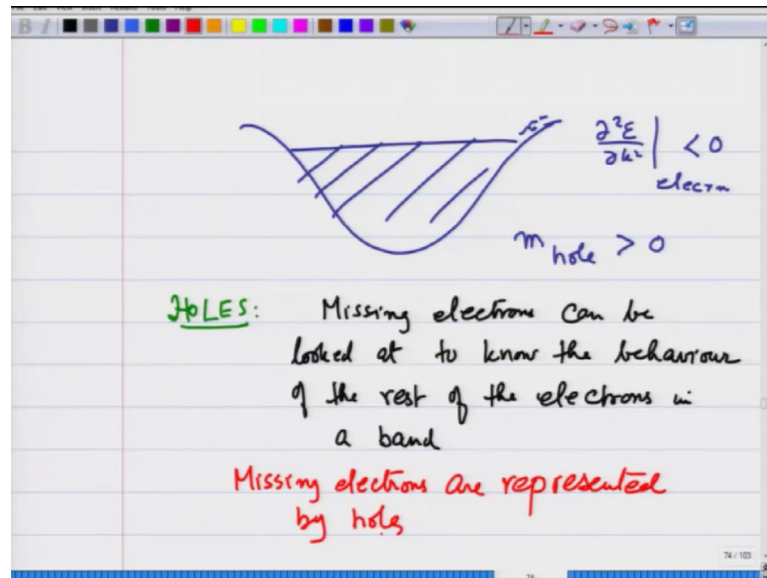 e⁻
∂²ε/∂k² | < 0
electrn
m hole > 0
HOLES: Missing electrons can be
looked at to know the behaviour
of the rest of the electrons in
a band
Missing electrons are represented
by holes
74 / 103